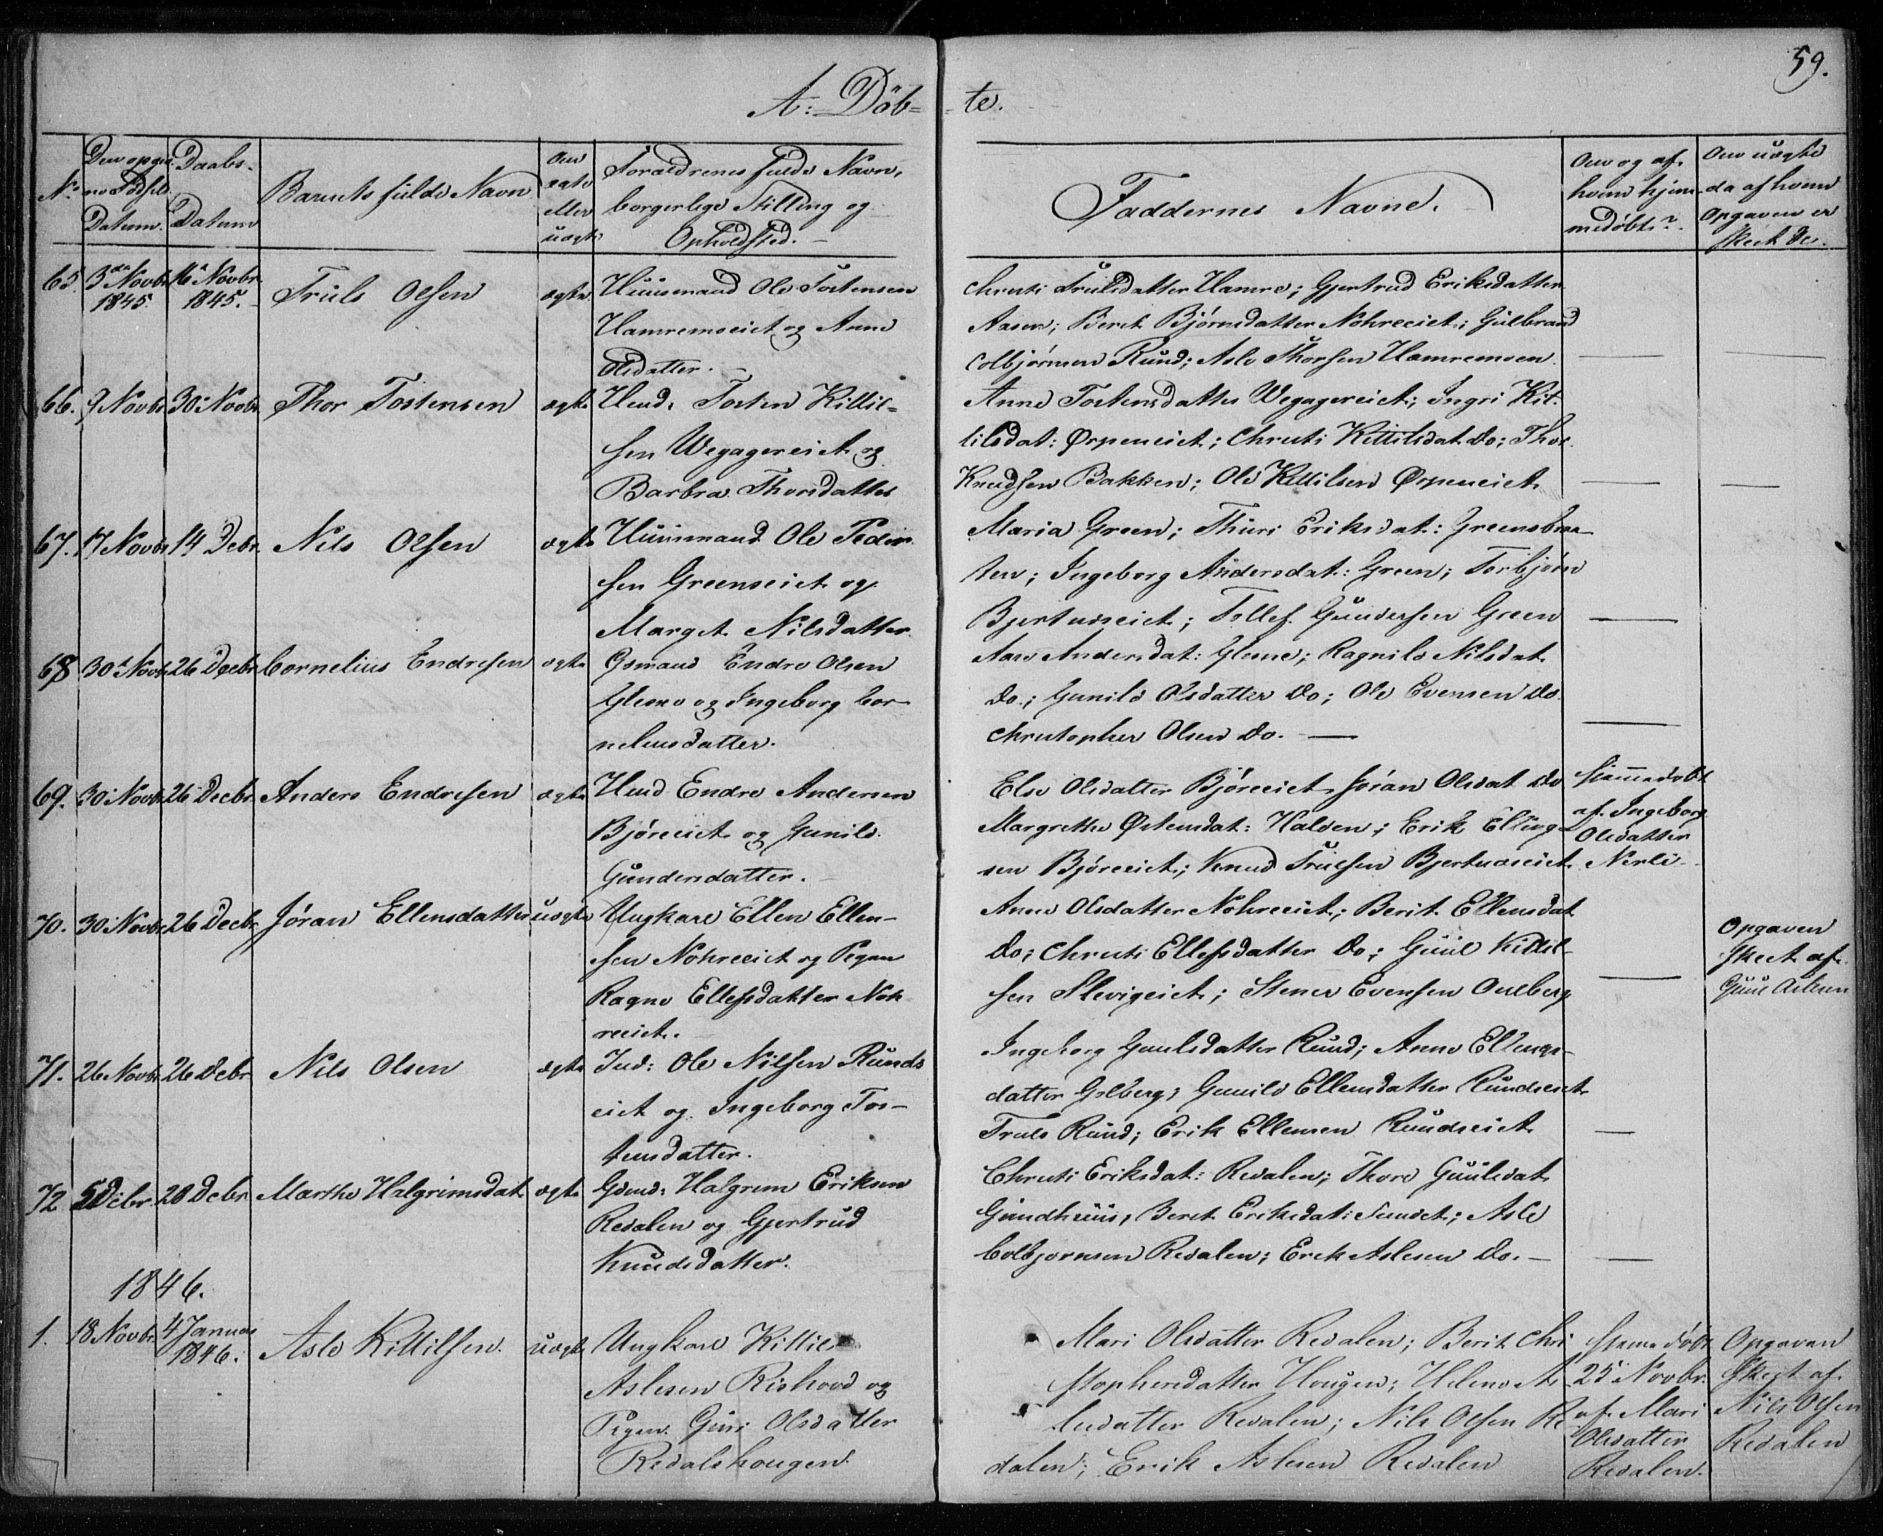 59.
A: Döb- te.
No. Den opgivne Fødsels Datum. Daabs-Datum Barnets fulde Navn Om ægte eller uægte Foraldrenes fulde Navn, borgerlige Stilling og Opholdsted. Faddernes Navne. Om og af hvem hjemmedøbt? Om uægte da af hvem Opgaven er skeet &c.
65. 3die Novbr 1845. 16de Novbr 1845. Truls Olsen ægte Huusmand Ole Tostensen
Hamremseiet og Anne
Olsdatter.
Christi Trulsdatter Hamre; Gjertrud Eriksdatter
Aasen; Berit Bjørnsdatter Nohreeiet; Gulbrand
Colbjørnsen Ruud; Asle Thorsen Hamremoen.
66. 9 Novbr 30 Novbr. Thor Tostensen ægte Huusd: Tosten Kittil-
sen Wegagereiet og
Barbra Thorsdatter
Anne Tostensdatter Wegagereiet; Ingri Kit-
tilsdat: Ørpeneiet; Christi Kittilsdat. do; Thor
Knudsen Bakken; Ole Kittilsen Ørpeneiet.
67. 17 Novbr 14 Debr. Nils Olsen ægte Huusmand Ole Peder-
sen Greenseiet og
Marget Nilsdatter
Maria Green; Thuri Eriksdat: Greensbraa-
ten; Ingeborg Andersdat: Green; Torbjørn
Bjertnæseiet; Tollef Gundersen Green
68 30te Novbr 26 Decbr Cornelius Endresen ægte Gsmand Endre Olsen
Glesne og Ingeborg Cor-
neliusdatter.
Aase Andersdat: Glesne; Ragnild Nilsdat.
do.; Gunild Olsdatter do; Ole Evensen do.
Christopher Olsen do.
69. 30 Novbr. 26 Decbr. Anders Endresen ægte Husd Endre Andersen
Bjøreeiet og Gunild
Gundersdatter.
Else Olsdatter Bjøreeiet Jöran Olsdat do
Margrethe Østensdat: Halden; Erik Elling-
sen Bjøreeiet; Knud Truelsen Bjertnæseiet.
Hjemmedøbt
af Ingeborg
Olsdatter
Nerli.
70. 30 Novbr 26 Decbr. Jøran Ellensdatter uægte Ungkarl Ellen Ellen-
sen Nohreeiet og Pigen
Ragne Ellefsdatter Noh-
reeiet.
Anne Olsdatter Nohreeiet; Berit Ellensdat
do; Christi Ellefsdatter do; Guul Kittil-
sen Slevigeiet; Stener Evensen Oulberg
Opgaven
skeet af
Guul
71. 26 Novbr. 26 Debr. Nils Olsen ægte Ind: Ole Nilsen Ruuds
eiet og Ingeborg Tos-
tensdatter.
Ingeborg Guulsdatter Ruud; Anne Ellings-
datter Golberg; Gunild Ellensdatter Ruudseiet
Truls Ruud; Erik Ellensen Ruudseiet
72 5 Debr. 28 Debr. Marthe Halgrimsdat. ægte Gdmd: Halgrim Eriksen
Redalen og Gjertrud
Knudsdatter.
Christi Eriksdat: Redalen; Thore Guulsdat
Gundhuus; Berit Eriksdat: Sundet; Asle
Colbjørnsen Redalen; Erik Aslesen do.
1846.
1. 18 Novbr. 4 Januar 1846. Asle Kittilsen. uægte Ungkarl Kittil
Aslesen Rishovd og
Pigen Guri Olsdatter
Redalshougen.
Mari Olsdatter Redalen; Berit Chri
stophersdatter Hougen; Helene As
lesdatter Redalen; Nils Olsen Re
dalen; Erik Aslesen Redalen
Hjemmedøbt
25 Novbr.
af Mari
Olsdatter
Redalen.
Opgaven
skeet af
Nils Olsen
Redalen